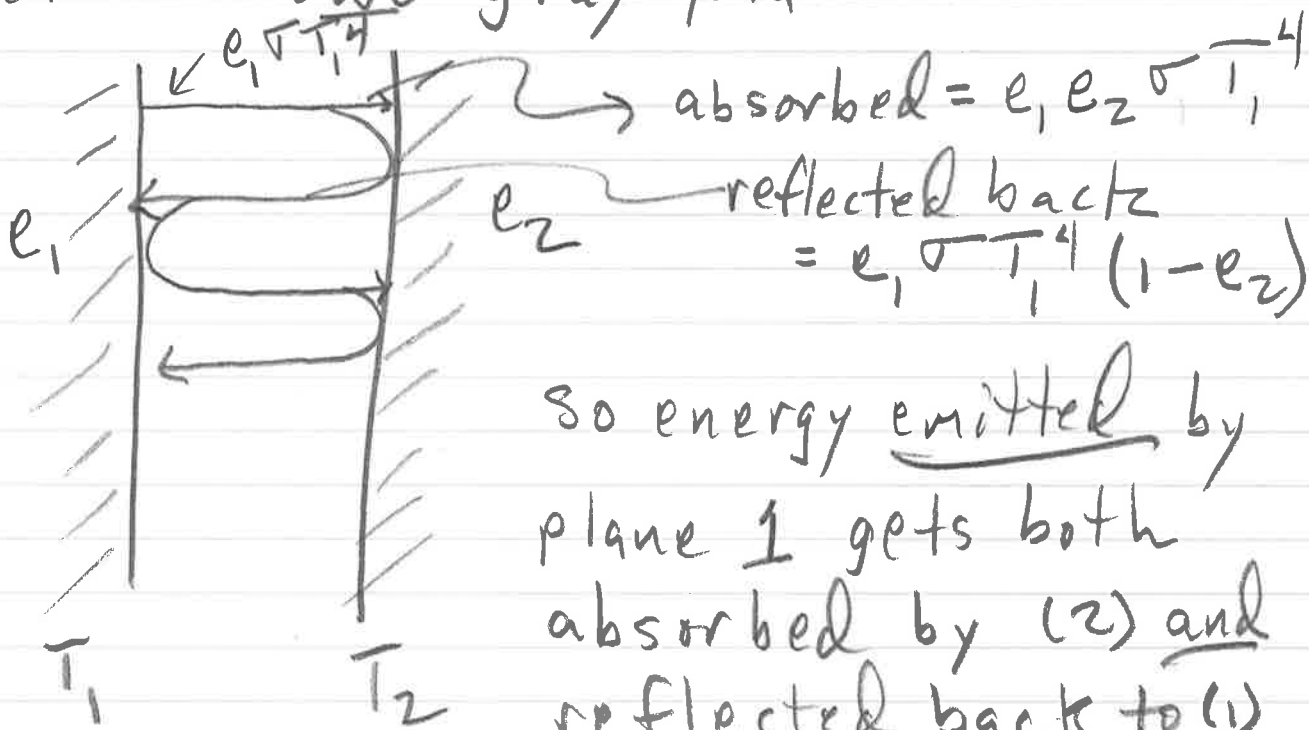 gray
e₁σT₁⁴
absorbed = e₁ e₂ σ T₁⁴
reflected back
= e₁ σ T₁⁴ (1-e₂)
e₁
e₂
so energy emitted by
plane 1 gets both
absorbed by (2) and
reflected back to (1)
T₁
T₂